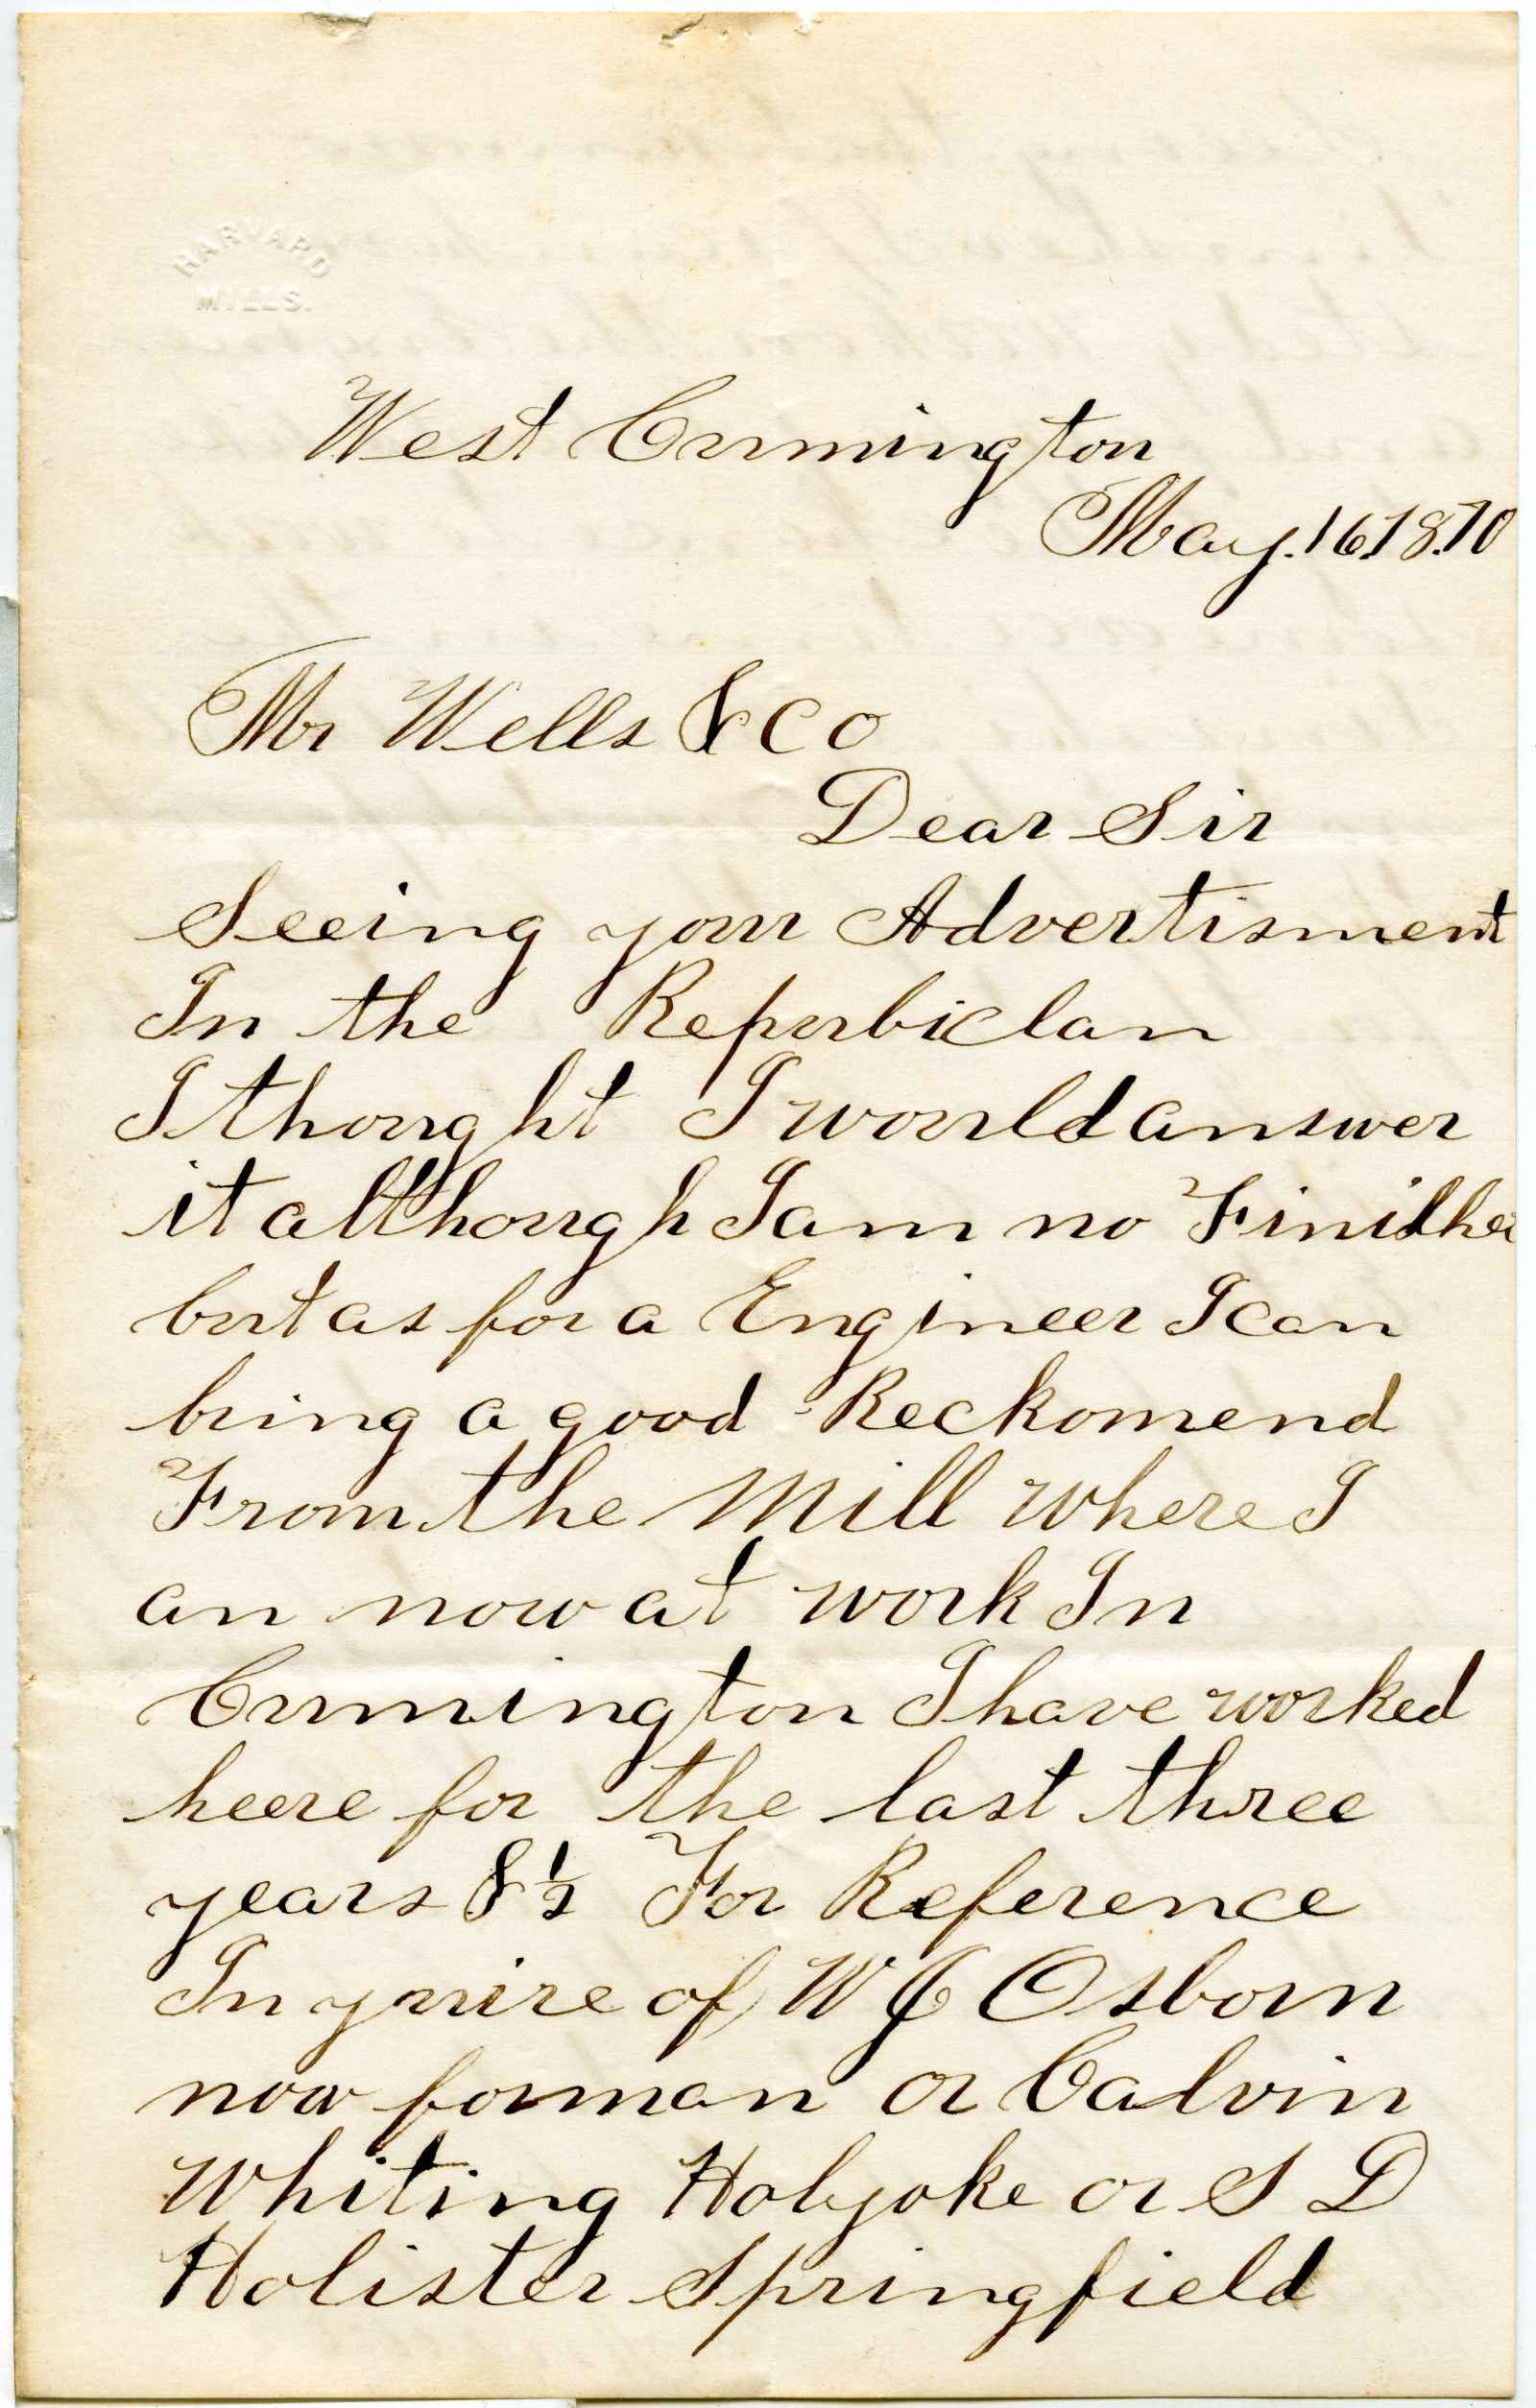 HARVARD
MILLS.
West Cumington
May. 16. 18.70
Mr Wells & Co
Dear Sir
Seeing your Advertisment
In the Repubiclan
I thought I would answer
it allthough I am no Finisher
but as for a Engineer I can
bring a good Reckomend
From the Mill where I
an now at work In
Cummington I have worked
heere for the last three
years & ½ For Reference
In yuire of W J Osborn
now forman or Calvin
Whiting Holyoke or S D
Holister Springfield